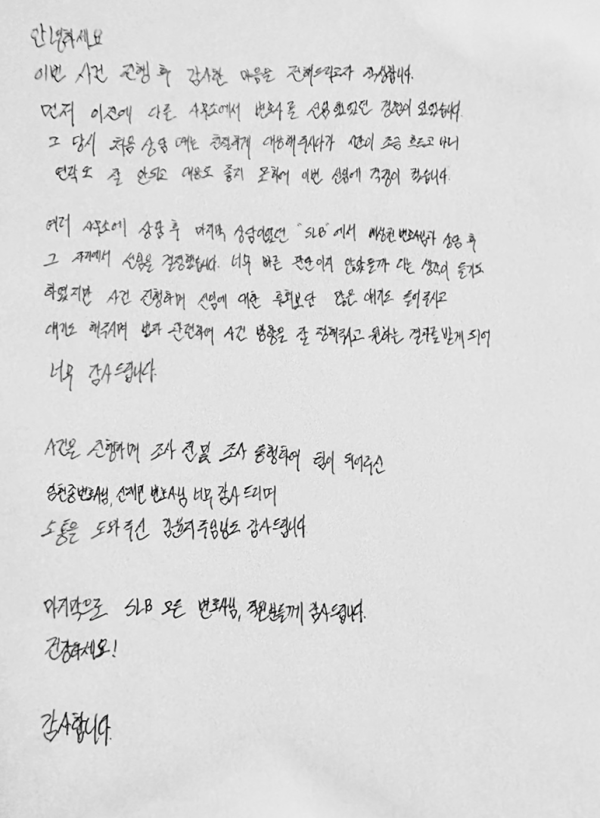 안녕하세요
이번 사건 진행 후 감사한 마음을 전해드리고자 작성합니다.
먼저 이전에 다른 사무소에서 변호사를 선임했었던 경험이 있었습니다
그 당시 처음 상담 때는 친절하게 대응해주시다가 시간이 조금 흐르고나니
연락도 잘 안되고 대응도 좋지 못하여 이번 선임에 걱정이 컸습니다.
여러 사무소에 상담 후 마지막 상담이었던 "SLB"에서 변호사님과 상담 후
그 자리에서 선임을 결정했습니다. 너무 빠른 판단이지 않았을까 라는 생각이 들기도
하였지만 사건 진행하며 선임에 대한 후회보단 많은 얘기도 들어주시고
얘기도 해주시며 법과 관련하여 사건 방향을 잘 정해주시고 원하는 결과를 받게 되어
너무 감사드립니다.
사건을 진행하며 조사 전 및 조사 동행하여 힘이 되어주신
변호사님, 변호사님 너무 감사드리며
소통을 도와주신 김윤지 주임님도 감사드립니다
마지막으로 SLB 모든 변호사님, 직원분들께 감사드립니다.
건강하세요!
감사합니다.